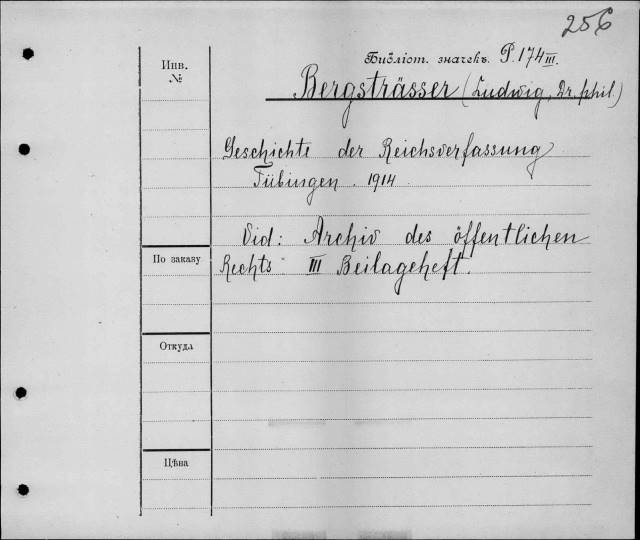 256
Библіот. значекъ P. 174 III.
Инв.
№
Bergsträsser (Ludwig, Dr. phil.)
Geschichte der Reichsverfassung
Tübingen. 1914
Vid: Archiv des öffentlichen
По заказу
Rechts III Beilageheft.
Откуда
Цѣна